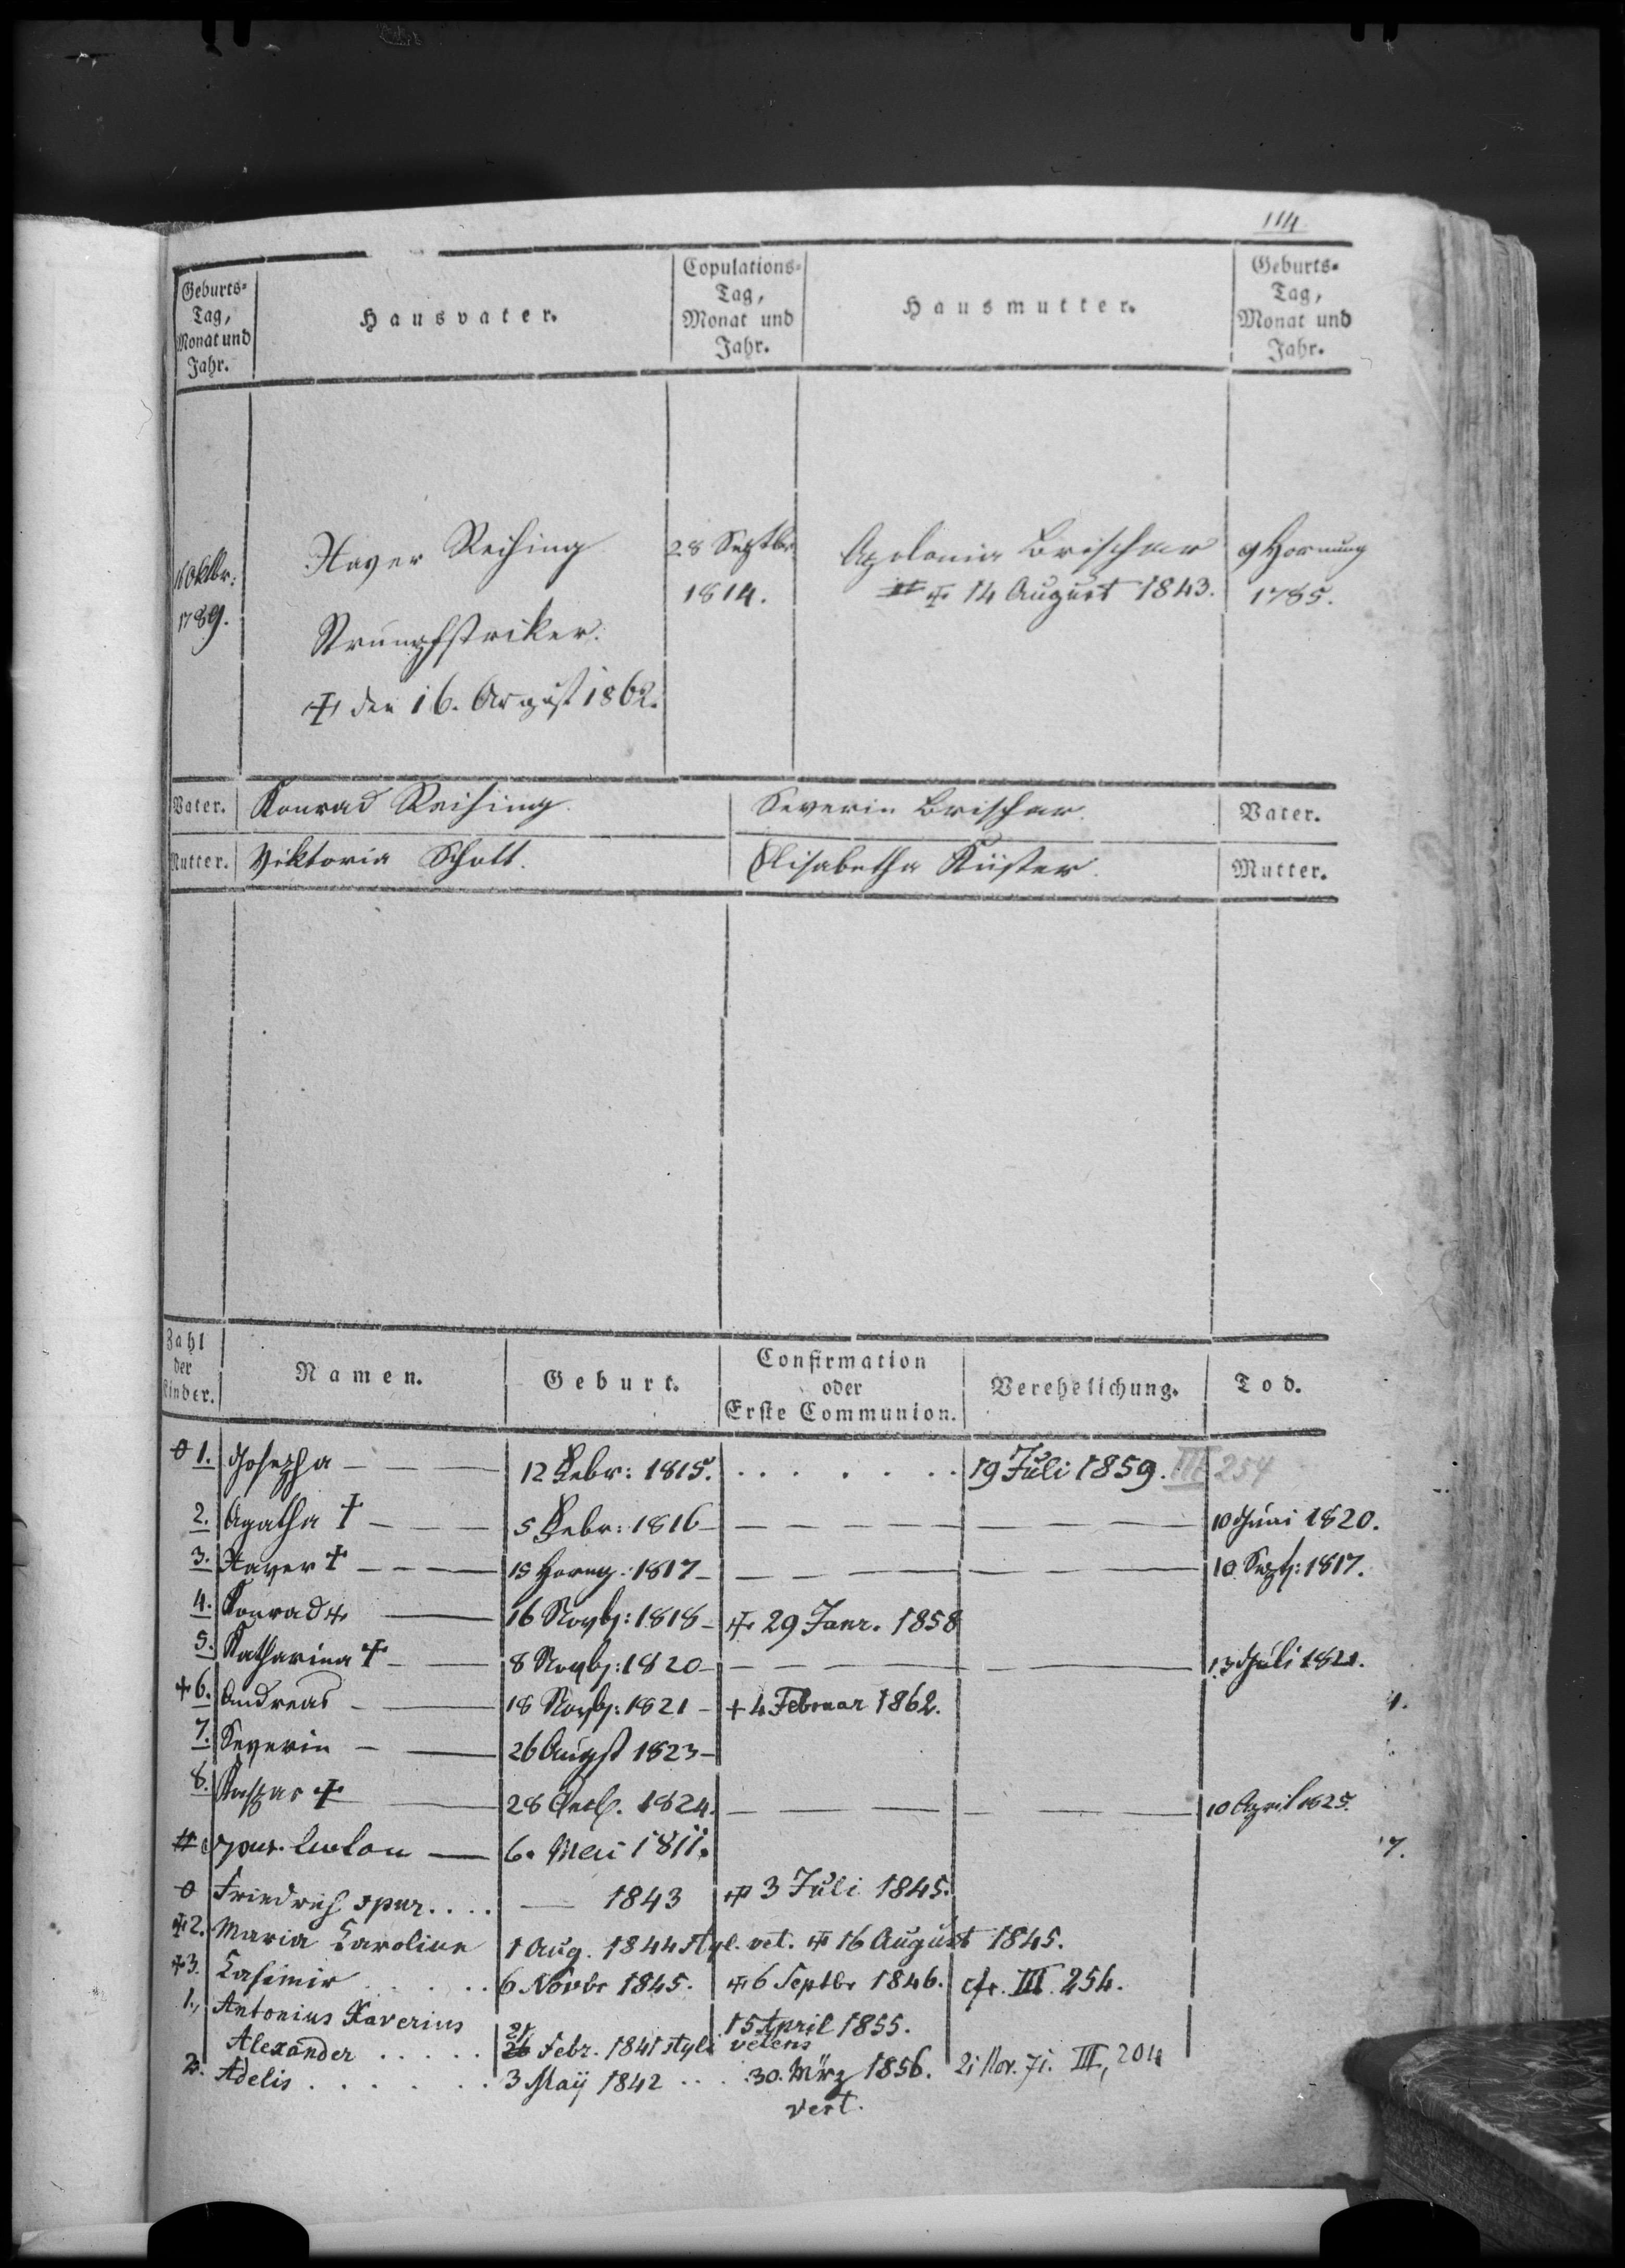 114.
Geburts-
Tag,
Monat und
Jahr.
Hausvater.
Copulations-
Tag,
Monat und
Jahr.
Hausmutter.
Geburts-
Tag,
Monat und
Jahr.
Oktbr:
1789.
Xaver Reihing
Strumpfstriker.
✝ den 16. August 1862.
28 Septbr
1814.
Apolonia Brischar
✝ 14 August 1843.
9 Hornung
1785.
Vater. Konrad Reihing. Severin Brischar. Vater.
Mutter. Viktoria Schott. Elisabetha Küster. Mutter.
Zahl
der
Kinder.
Namen.
Geburt.
Confirmation
oder
Erste Communion.
Verehelichung.
Tod.
1. Josepha — 12 Febr: 1815. . . . . . . 19 Juli 1859. III 254
2. Agatha ✝ — 5 Febr: 1816 — 10 Juni 1820.
3. Xaver ✝ — 15 Horng: 1817 — 10 Sept: 1817.
4. Konrad ✝ — 16 Novbr: 1818 — ✝ 29 Janr. 1858
5. Katharina ✝ — 8 Novbr: 1820 — 13 Juli 1821.
+ 6. Andreas — 18 Novbr: 1821 — + 4 Februar 1862.
7. Severin — 26 Augst 1823 —
8. Kaspar ✝ — 28 1824. — 10 April 1825.
spur. — 6. Mai 1811.
Friedrich spur. . . . — 1843 ✝ 3 Juli 1845.
✝ 2. Maria Caroline 1 Aug. 1844 styl. vet. ✝ 16 August 1845.
✝ 3. Casimir . . . . 6 Novbr 1845. ✝ 6 Septbr 1846. cfr. III. 254.
1., Antonius Xaverius 15 April 1855.
Alexander . . . . . 21 Febr. 1841 styli veteris
2. Adelis . . . . . . 3 Maÿ 1842 . . . 30. März 1856. 21 Nov. 71. III, 204
vert.